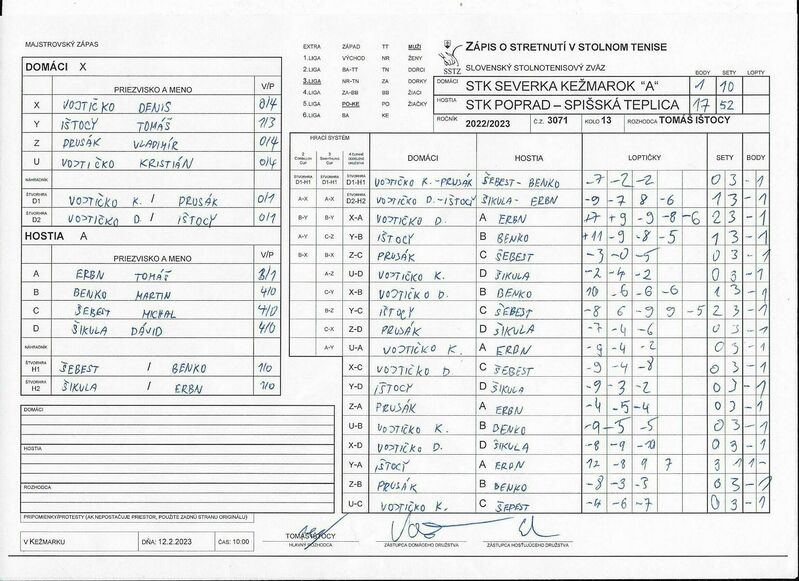 MAJSTROVSKÝ ZÁPAS
DOMÁCI X
PRIEZVISKO A MENO V/P
X VOJTIČKO DENIS 0/4
Y IŠTOCY TOMÁŠ 1/3
Z PRUSÁK VLADIMÍR 0/4
U VOJTIČKO KRISTIÁN 0/4
NÁHRADNÍK
ŠTVORHRA D1 VOJTIČKO K. / PRUSÁK 0/1
ŠTVORHRA D2 VOJTIČKO D. / IŠTOCY 0/1
HOSTIA A
PRIEZVISKO A MENO V/P
A ERBN TOMÁŠ 3/1
B BENKO MARTIN 4/0
C ŠEBEST MICHAL 4/0
D ŠIKULA DÁVID 4/0
NÁHRADNÍK
ŠTVORHRA H1 ŠEBEST / BENKO 1/0
ŠTVORHRA H2 ŠIKULA / ERBN 1/0
DOMÁCI
HOSTIA
ROZHODCA
PRIPOMIENKY/PROTESTY (AK NEPOSTAČUJE PRIESTOR, POUŽITE ZADNÚ STRANU ORIGINÁLU)
V KEŽMARKU DŇA: 12.2.2023 ČAS: 10:00
EXTRA ZÁPAD TT MUŽI
1.LIGA VÝCHOD NR ŽENY
2.LIGA BA-TT TN DORCI
3.LIGA NR-TN ZA DORKY
4.LIGA ZA-BB BB ŽIACI
5.LIGA PO-KE PO ŽIAČKY
6.LIGA BA KE
SSTZ
ZÁPIS O STRETNUTÍ V STOLNOM TENISE
SLOVENSKÝ STOLNOTENISOVÝ ZVÄZ
BODY SETY LOPTY
DOMÁCI STK SEVERKA KEŽMAROK "A" 1 10
HOSTIA STK POPRAD – SPIŠSKÁ TEPLICA 17 52
ROČNÍK 2022/2023 Č.Z. 3071 KOLO 13 ROZHODCA TOMÁŠ IŠTOCY
HRACÍ SYSTÉM DOMÁCI HOSTIA LOPTIČKY SETY BODY
ŠTVORHRA D1-H1 ŠTVORHRA D1-H1 ŠTVORHRA D1-H1 VOJTIČKO K.-PRUSÁK ŠEBEST-BENKO -7 -2 -2 0 3 -1
A-X A-X ŠTVORHRA D2-H2 VOJTIČKO D.-IŠTOCY ŠIKULA-ERBN -9 -7 8 -6 1 3 -1
B-Y B-Y X-A VOJTIČKO D. A ERBN +7 +9 -9 -8 -6 2 3 -1
A-Y C-Z Y-B IŠTOCY B BENKO +11 -9 -8 -5 1 3 -1
B-X B-X Z-C PRUSÁK C ŠEBEST -3 -0 -5 0 3 -1
A-Z U-D VOJTIČKO K. D ŠIKULA -2 -4 -2 0 3 -1
C-Y X-B VOJTIČKO D. B BENKO 10 -6 -6 -6 1 3 -1
B-Z Y-C IŠTOCY C ŠEBEST -8 6 -9 9 -5 2 3 -1
C-X Z-D PRUSÁK D ŠIKULA -7 -4 -6 0 3 -1
A-Y U-A VOJTIČKO K. A ERBN -9 -4 -2 0 3 -1
X-C VOJTIČKO D C ŠEBEST -9 -4 -8 0 3 -1
Y-D IŠTOCY D ŠIKULA -9 -3 -2 0 3 -1
Z-A PRUSÁK A ERBN -4 -5 -4 0 3 -1
U-B VOJTIČKO K. B BENKO -9 -5 -5 0 3 -1
X-D VOJTIČKO D. D ŠIKULA -8 -9 -10 0 3 -1
Y-A IŠTOCY A ERBN 12 -8 9 7 3 1 1-
Z-B PRUSÁK B BENKO -8 -3 -3 0 3 -1
U-C VOJTIČKO K. C ŠEBEST -4 -6 -7 0 3 -1
TOMÁŠ IŠTOCY
HLAVNÝ ROZHODCA ZÁSTUPCA DOMÁCEHO DRUŽSTVA ZÁSTUPCA HOSŤUJÚCEHO DRUŽSTVA